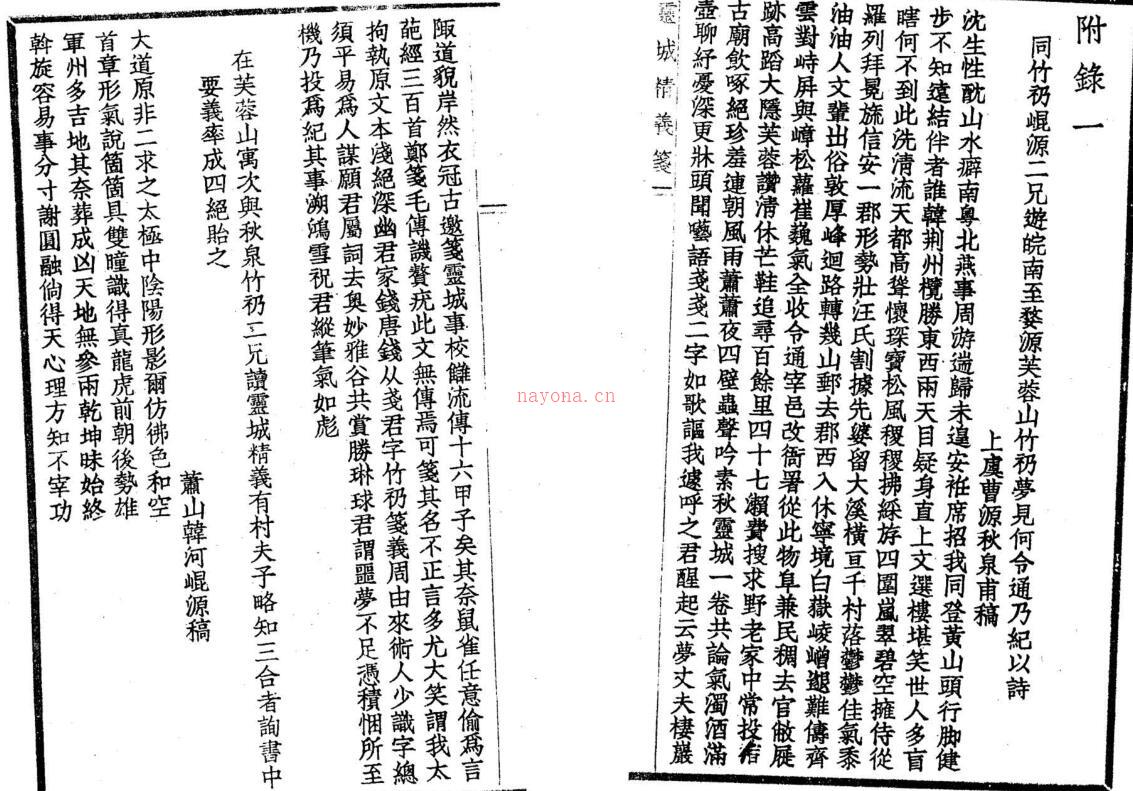 附錄一
同竹礽崐源二兄遊皖南至婺源芙蓉山竹礽夢見何令通乃紀以詩
上虞曹源秋泉甫稿
沈生性酖山水癖南粵北燕事周游遄歸未遑安袵席招我同登黃山頭行脚健
步不知遠結伴者誰韓荆州欖勝東西兩天目疑身直上文選樓堪笑世人多盲
瞎何不到此洗清流天都高聳懷琛寶松風稷稷拂綵斿四圍嵐翠碧空擁侍從
羅列拜冕旒信安一郡形勢壯汪氏割據先婆留大溪橫亘千村落鬱鬱佳氣黍
油油人文輩出俗敦厚峰迴路轉幾山郵去郡西入休寧境白嶽崚嶒邈難儔齊
雲對峙屏與嶂松蘿崔巍氣全收令通宰邑改衙署從此物阜兼民稠去官敝屣
跡高蹈大隱芙蓉讚清休芒鞋追尋百餘里四十七瀨費搜求野老家中常投宿
古廟飲啄絕珍羞連朝風雨蕭蕭夜四壁蟲聲吟素秋靈城一卷共論氣濁酒滿
壺聊紓憂深更牀頭聞囈語戔戔二字如歌謳我遽呼之君醒起云夢丈夫棲巖
靈城精義箋
一
陬道貌岸然衣冠古邀箋靈城事校讎流傳十六甲子矣其奈鼠雀任意偷爲言
葩經三百首鄭箋毛傳譏贅疣此文無傳焉可箋其名不正言多尤大笑謂我太
拘執原文本淺絕深幽君家錢唐錢从戔君字竹礽箋義周由來術人少識字總
須平易爲人謀願君屬詞去奥妙雅谷共賞勝琳球君謂噩夢不足憑積悃所至
機乃投爲紀其事溯鴻雪祝君縱筆氣如彪
在芙蓉山寓次與秋泉竹礽二兄讀靈城精義有村夫子略知三合者詢書中
要義率成四絕貽之
蕭山韓河崐源稿
大道原非二求之太極中陰陽形影爾仿彿色和空
首章形氣說箇箇具雙瞳識得真龍虎前朝後勢雄
軍州多吉地其奈葬成凶天地無參兩乾坤昧始終
斡旋容易事分寸謝圓融倘得天心理方知不宰功
nayona.cn